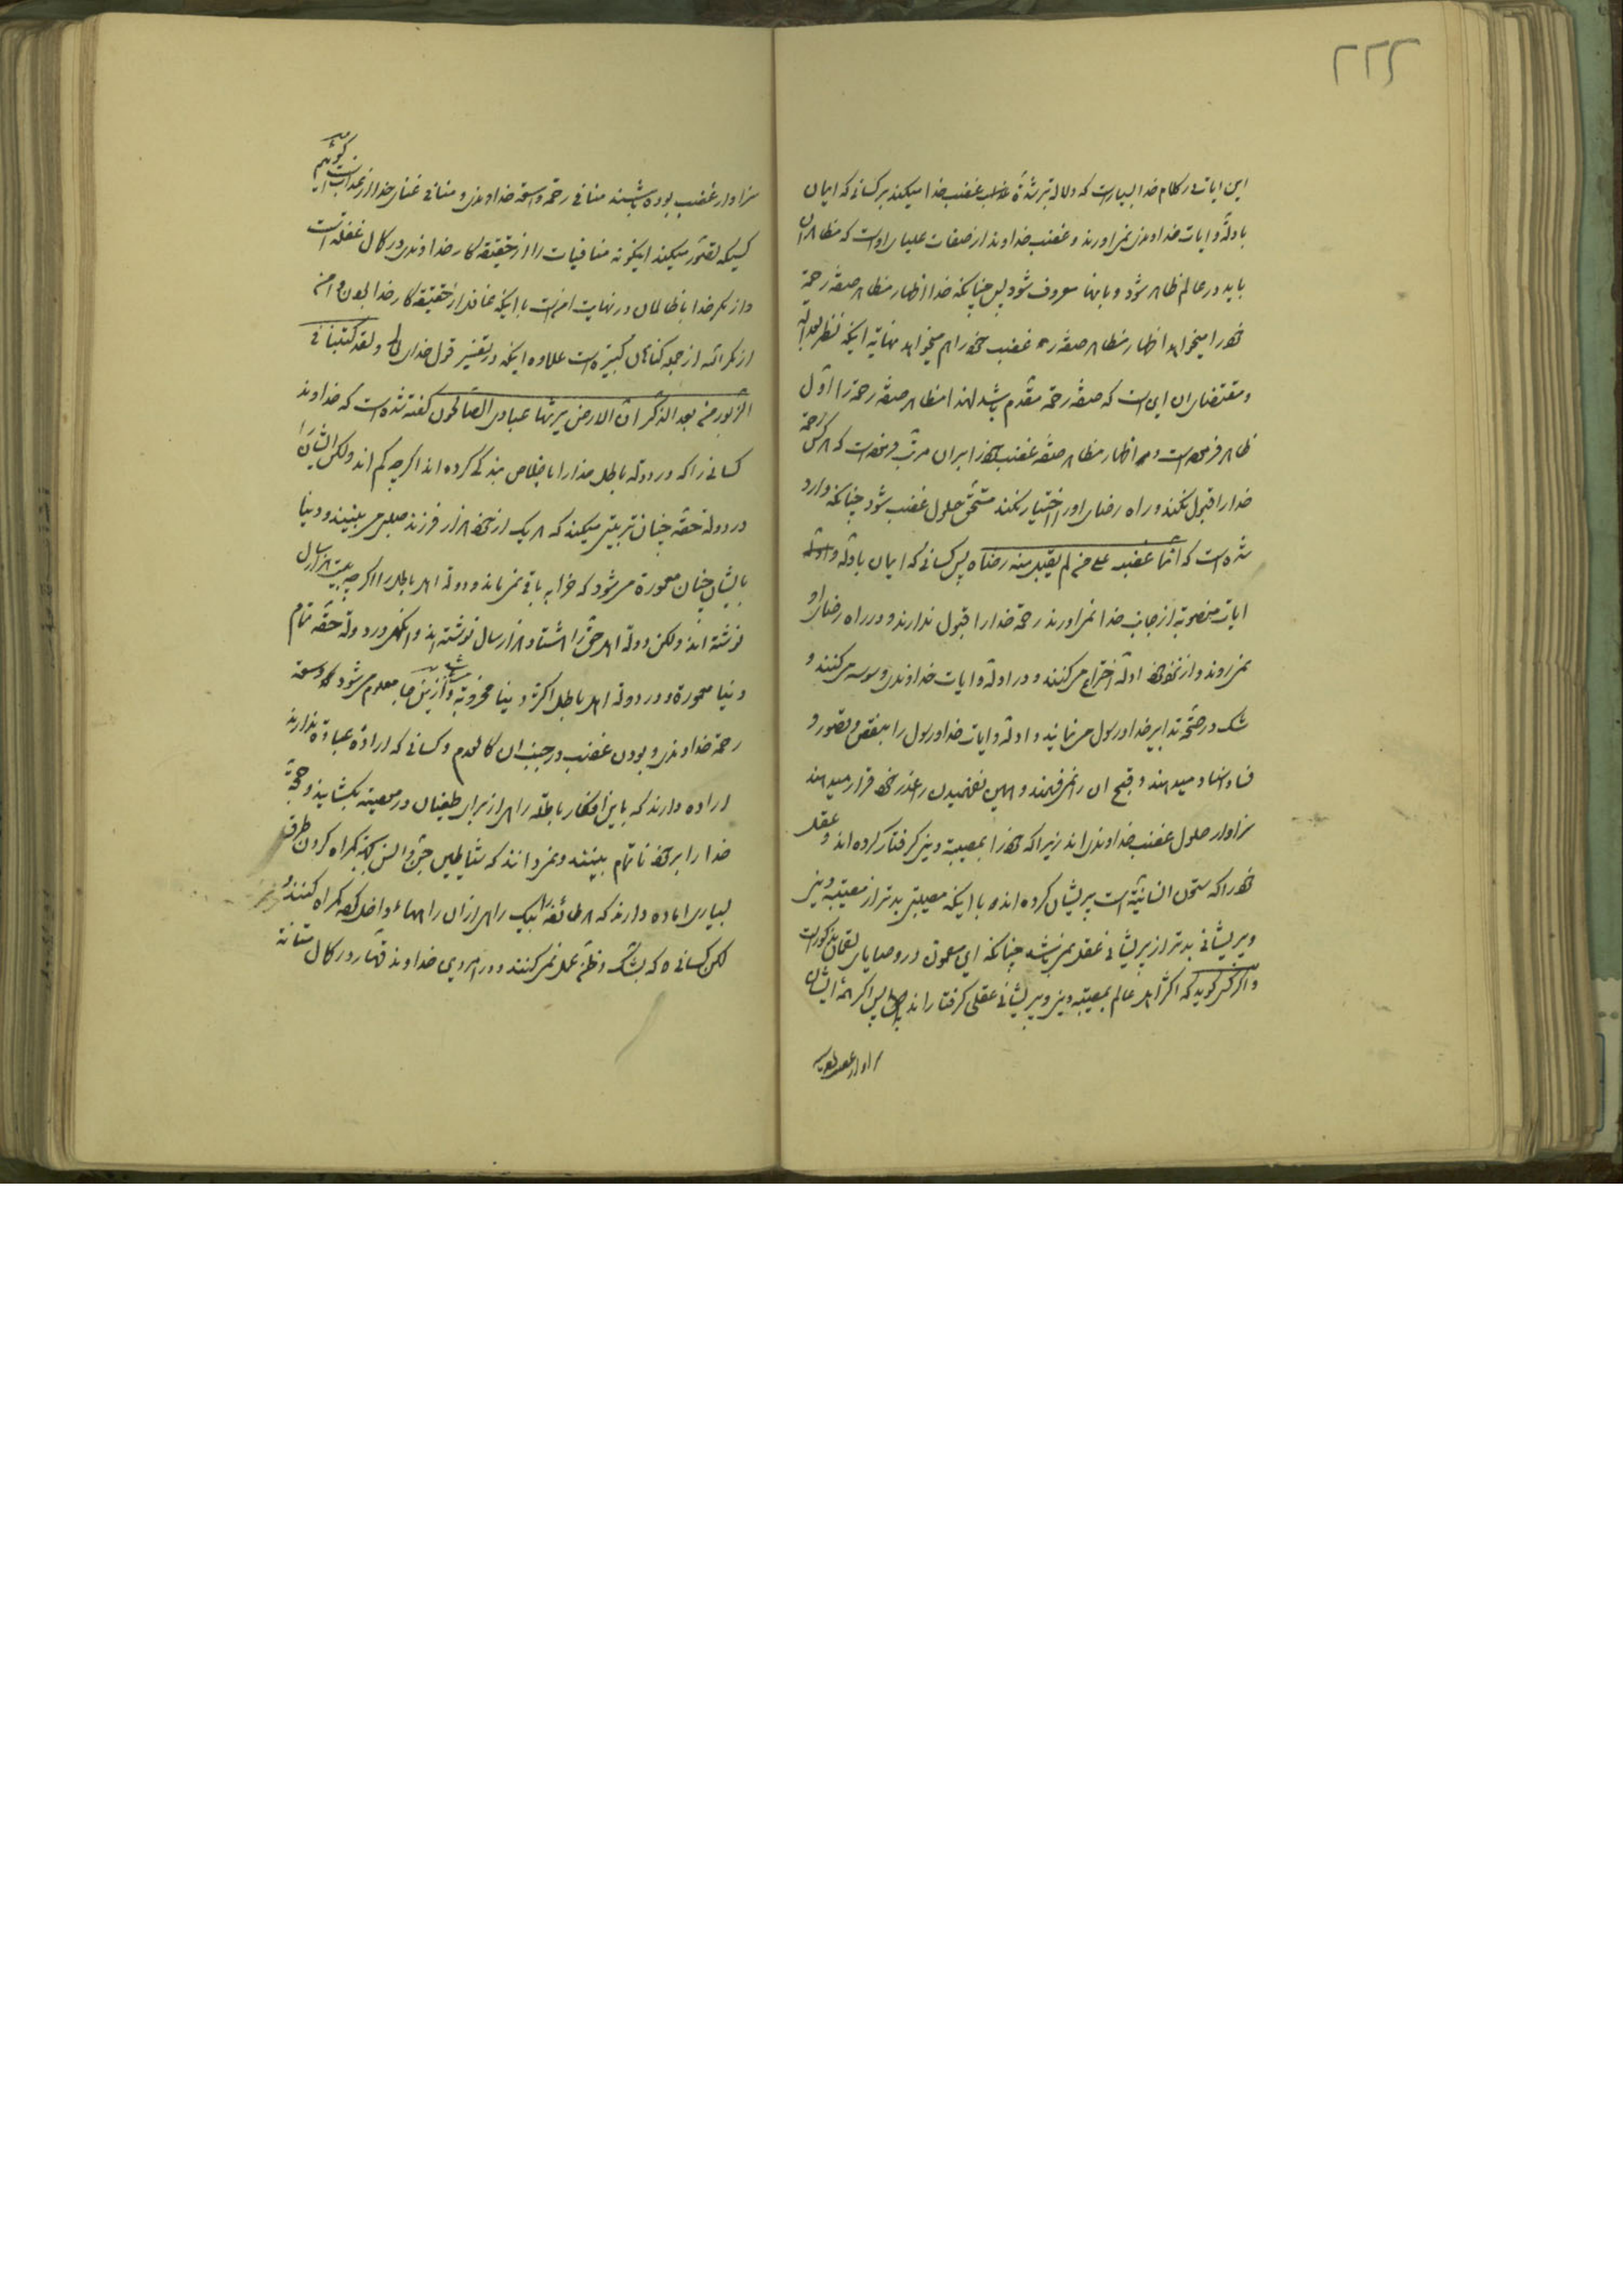 ۲۲۲
این ایات در کلام خدا بسیار است که دلالة بر شدّة غضب خدا میکند بر کسانی که ایمان
بادلّه و ایات خداوندی نمی اورند و غضب خداوند از صفات علیای او است که مظاهر ان
باید در عالم ظاهر شود و بانها معروف شود پس چنانکه خدا اظهار مظاهر صفة رحمة
خود را میخواهد اظهار مظاهر صفة غضب خود را هم میخواهد نهایة اینکه نظر بعدالة
و مقتضای ان این است که صفة رحمة مقدّم باشد لهذا مظاهر صفة رحمة را اوّل
ظاهر فرموده است و اظهار مظاهر صفة غضب خود را بران مرتب فرموده است که هر کس رحمة
خدا را قبول نکند و راه رضای او را اختیار نکند مستحق حلول غضب شود چنانکه وارد
شده است که انّما غضبه علی من لم یقبل منه رضاه پس کسانی که ایمان بادلّه و
ایات منصوبة از جانب خدا نمی اورند رحمة خدا را قبول ندارند و در راه رضای او
نمی روند و از نحو خود ادلّه اختراع می کنند و در ادلّه و ایات خداوندی وسوسه می کنند و
شک در صحّة تدابیر خدا و رسول می نمایند و ادلّه و ایات خدا و رسول را بنقص و قصور و
فساد اسناد میدهند و قبح ان را نمی فهمند و همین نفهمیدن را عذر خود قرار میدهند
سزاوار حلول غضب خداوندی اند زیرا که خود را بمصیبة دینی گرفتار کرده اند و عقل
خود را که ستون انسانیّة است پریشان کرده اند با اینکه مصیبتی بدتر از مصیبة دینی
و پریشانی بدتر از پریشانی عقل نمی باشد چنانکه این مضمون در وصایای لقمان مذکور است
و اگر کسی گوید که اکثر اهل عالم بمصیبة دینی و پریشانی عقلی گرفتار اند پس اگر همه ایشان
سزاوار غضب بوده
سزاوار غضب بوده باشند منافی رحمة واسعة خداوندی و منافی غنای خدا از عذاب است گوئیم
کسیکه تصوّر میکند اینگونه منافیات را از حقیقة کار خداوندی در کمال غفلة است
و از مکر خدا با ظالمان در نهایت امن است با اینکه غافل از حقیقة کار خدا بودن و امن
از مکر الله از جمله گناهان کبیره است علاوه اینکه در تفسیر قول خدای تعالی و لقد کتبنا فی
الزّبور من بعد الذّکر انّ الارض یرثها عبادی الصّالحون گفته شده است که خداوند
کسانی را که در دولة باطل خدا را باخلاص بندگی کرده اند اگرچه کم اند ولکن ایشان را
در دولة حقّه چنان تربیتی میکند که هر یک از خود هزار فرزند صلبی می بینند و دنیا
بایشان چنان معمورة می شود که خرابه باقی نمی ماند و دولة اهل باطل را اگرچه بیست هزار سال
نوشته اند ولکن دولة اهل حقّ را هشتاد هزار سال نوشته اند و انگهی در دولة حقّه تمام
دنیا معمورة و در دولة اهل باطل اکثر دنیا مخروبة باشد و از این جا معلوم می شود وسعة
رحمة خداوندی و بودن غضب در جنب ان کالعدم و کسانی که ارادة عبادة ندارند
اراده دارند که باین افکار باطله راهی از برای طغیان و معصیة بگشایند و حجّة
خدا را بر خود ناتمام ببینند و نمی دانند که شیاطین جنّ و انس بجهة گمراه کردن طرق
بسیاری اماده دارند که هر طائفه را بیک راهی از ان راهها داخل کرده گمراه کنند و
لکن کسانی که بشکّ و ظنّ عمل نمی کنند و در امر دین خداوند قهّار در کمال متانة